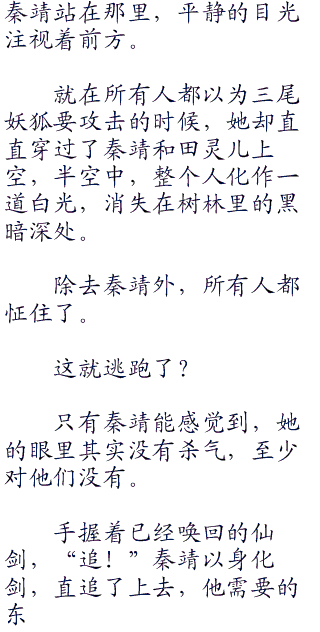 秦靖站在那里，平静的目光
注视着前方。
就在所有人都以为三尾
妖狐要攻击的时候，她却直
直穿过了秦靖和田灵儿上
空，半空中，整个人化作一
道白光，消失在树林里的黑
暗深处。
除去秦靖外，所有人都
怔住了。
这就逃跑了？
只有秦靖能感觉到，她
的眼里其实没有杀气，至少
对他们没有。
手握着已经唤回的仙
剑，“追！”秦靖以身化
剑，直追了上去，他需要的
东